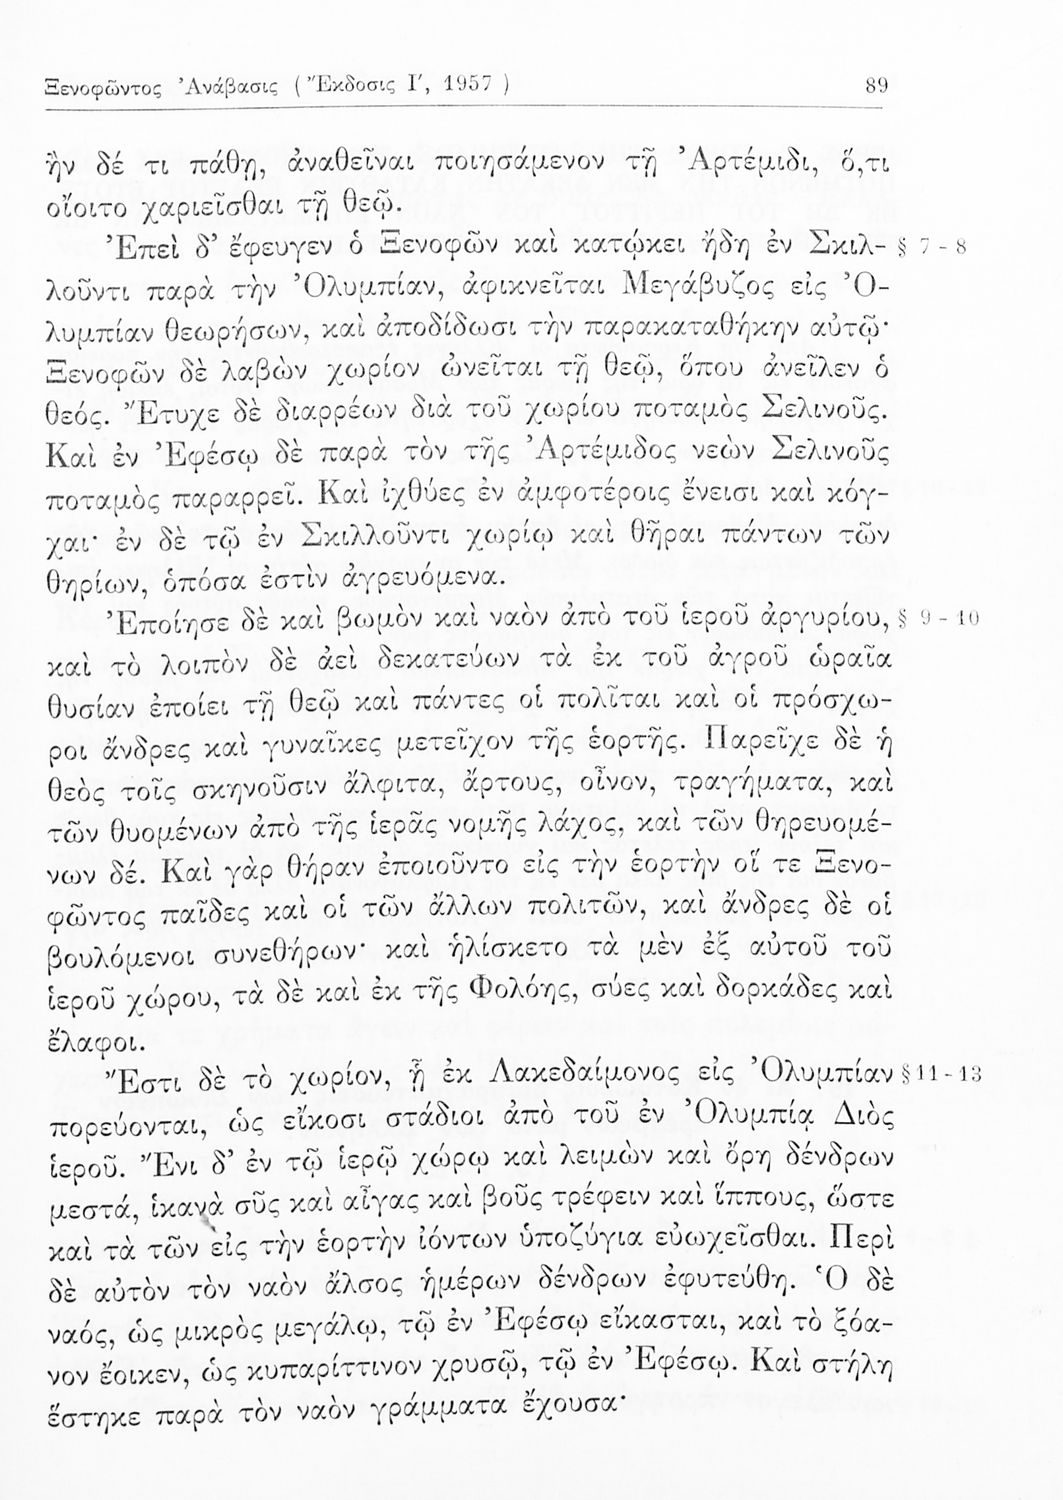 Ξενοφῶντος Ἀνάβασις ( Ἔκδοσις Γ′, 1957 ) 89
ἢν δέ τι πάθῃ, ἀναθεῖναι ποιησάμενον τῇ Ἀρτέμιδι, ὅ,τι
οἴοιτο χαριεῖσθαι τῇ θεῷ.
Ἐπεὶ δ’ ἔφευγεν ὁ Ξενοφῶν καὶ κατῴκει ἤδη ἐν Σκιλ- § 7 - 8
λοῦντι παρὰ τὴν Ὀλυμπίαν, ἀφικνεῖται Μεγάβυζος εἰς Ὀ-
λυμπίαν θεωρήσων, καὶ ἀποδίδωσι τὴν παρακαταθήκην αὐτῷ·
Ξενοφῶν δὲ λαβὼν χωρίον ὠνεῖται τῇ θεῷ, ὅπου ἀνεῖλεν ὁ
θεός. Ἔτυχε δὲ διαρρέων διὰ τοῦ χωρίου ποταμὸς Σελινοῦς.
Καὶ ἐν Ἐφέσῳ δὲ παρὰ τὸν τῆς Ἀρτέμιδος νεὼν Σελινοῦς
ποταμὸς παραρρεῖ. Καὶ ἰχθύες ἐν ἀμφοτέροις ἔνεισι καὶ κόγ-
χαι· ἐν δὲ τῷ ἐν Σκιλλοῦντι χωρίῳ καὶ θῆραι πάντων τῶν
θηρίων, ὁπόσα ἐστὶν ἀγρευόμενα.
Ἐποίησε δὲ καὶ βωμὸν καὶ ναὸν ἀπὸ τοῦ ἱεροῦ ἀργυρίου, § 9 - 10
καὶ τὸ λοιπὸν δὲ ἀεὶ δεκατεύων τὰ ἐκ τοῦ ἀγροῦ ὡραῖα
θυσίαν ἐποίει τῇ θεῷ καὶ πάντες οἱ πολῖται καὶ οἱ πρόσχω-
ροι ἄνδρες καὶ γυναῖκες μετεῖχον τῆς ἑορτῆς. Παρεῖχε δὲ ἡ
θεὸς τοῖς σκηνοῦσιν ἄλφιτα, ἄρτους, οἶνον, τραγήματα, καὶ
τῶν θυομένων ἀπὸ τῆς ἱερᾶς νομῆς λάχος, καὶ τῶν θηρευομέ-
νων δέ. Καὶ γὰρ θήραν ἐποιοῦντο εἰς τὴν ἑορτὴν οἵ τε Ξενο-
φῶντος παῖδες καὶ οἱ τῶν ἄλλων πολιτῶν, καὶ ἄνδρες δὲ οἱ
βουλόμενοι συνεθήρων· καὶ ἡλίσκετο τὰ μὲν ἐξ αὐτοῦ τοῦ
ἱεροῦ χώρου, τὰ δὲ καὶ ἐκ τῆς Φολόης, σύες καὶ δορκάδες καὶ
ἔλαφοι.
Ἔστι δὲ τὸ χωρίον, ᾗ ἐκ Λακεδαίμονος εἰς Ὀλυμπίαν § 11 - 13
πορεύονται, ὡς εἴκοσι στάδιοι ἀπὸ τοῦ ἐν Ὀλυμπίᾳ Διὸς
ἱεροῦ. Ἔνι δ’ ἐν τῷ ἱερῷ χώρῳ καὶ λειμὼν καὶ ὄρη δένδρων
μεστά, ἱκανὰ σῦς καὶ αἶγας καὶ βοῦς τρέφειν καὶ ἵππους, ὥστε
καὶ τὰ τῶν εἰς τὴν ἑορτὴν ἰόντων ὑποζύγια εὐωχεῖσθαι. Περὶ
δὲ αὐτὸν τὸν ναὸν ἄλσος ἡμέρων δένδρων ἐφυτεύθη. Ὁ δὲ
ναός, ὡς μικρὸς μεγάλῳ, τῷ ἐν Ἐφέσῳ εἴκασται, καὶ τὸ ξόα-
νον ἔοικεν, ὡς κυπαρίττινον χρυσῷ, τῷ ἐν Ἐφέσῳ. Καὶ στήλη
ἕστηκε παρὰ τὸν ναὸν γράμματα ἔχουσα·